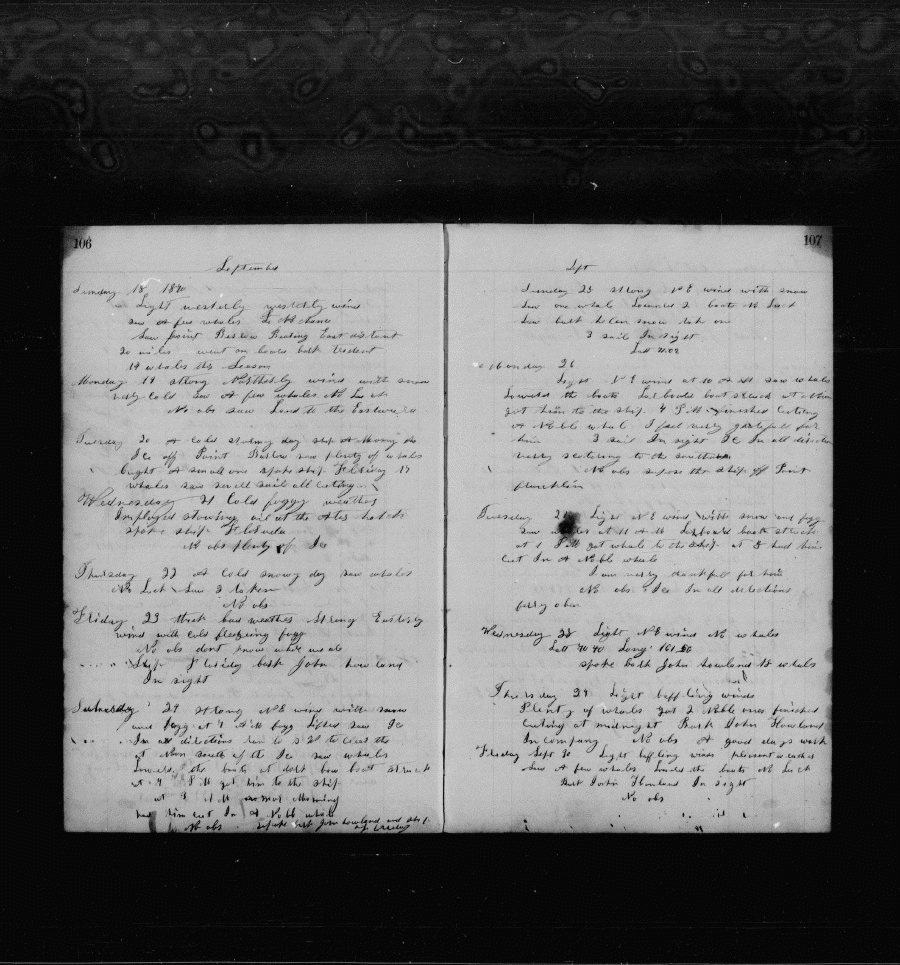 106
September
Sunday 18 18
Light westerly westerly wind
saw A few whales No chance
Saw point Barlow East distant
20 miles went on board bark trident
14 whales this Season
Monday 19 strong Northerly wind with snow
very cold saw A few whales No Luck
No obs saw Land to the Eastward
Tuesday 20 A cold stormy day ship A
Ice off Point Barlow saw plenty of whales
Caught A small one spoke ship Floriday 17
whales saw sail all cuting
Wednesday 21 Cold foggy weather
Imployed stowing oil at the hatch
spoke ship Florida
No obs plenty of Ice
Thursday 22 A Cold snowy day saw whales
No Luck Saw 3 taken
No obs
Friday 23 thick bad weather Strong Easterly
wind with cold fog
No obs dont know whire we ab
Ship Floriday bark John howland
In sight
Saturday 24 strong N E wind with snow
and fogg at 9 A M fogg lifted saw Ice
In all directions run to S to clear the
at Noon South of the Ice saw whales
Lowered the boats at bow boat struck
at 4 P M got him to the ship
at 3 A M Morning
had him cut In A Noble whale
No obs spoke bark John howland and Ship
107
Sept
Sunday 25 strong N E wind with snow
Saw one whale Lowered 2 boats No Luck
Saw bark snow
3 sail In sight
Latt 71.02
Monday 26
Light N E wind at 10 A M saw whales
Lowered the boats Larboard boat struck at
got him to the ship 4 P M finished Cuting
A Noble whale I feel very gratefull for
him 3 sail In sight Ice In all direction
very scatering to the southern
No obs suppose the ship off Point
franklin
Tuesday 27 Light N E wind with snow and fogg
saw whales at 11 A M Larboard boat struck
at 1 P M got whale to the ship at 8 had him
cut In A Noble whale
I am very thankfull for him
No obs Ice In all directions
Wednesday 28 Light N E wind No whales
Latt 70 40 Long 161
spoke bark John howland 18 whales
Thursday 29 Light baffling winds
Plenty of whales got 2 Noble ones finished
Cuting at midnight Bark John Howland
In company No obs A good days work
Friday Sept 30 Light baffling winds pleasant weather
Saw A few whales Lowered the boats No Luck
Bark John Howland In sight
No obs